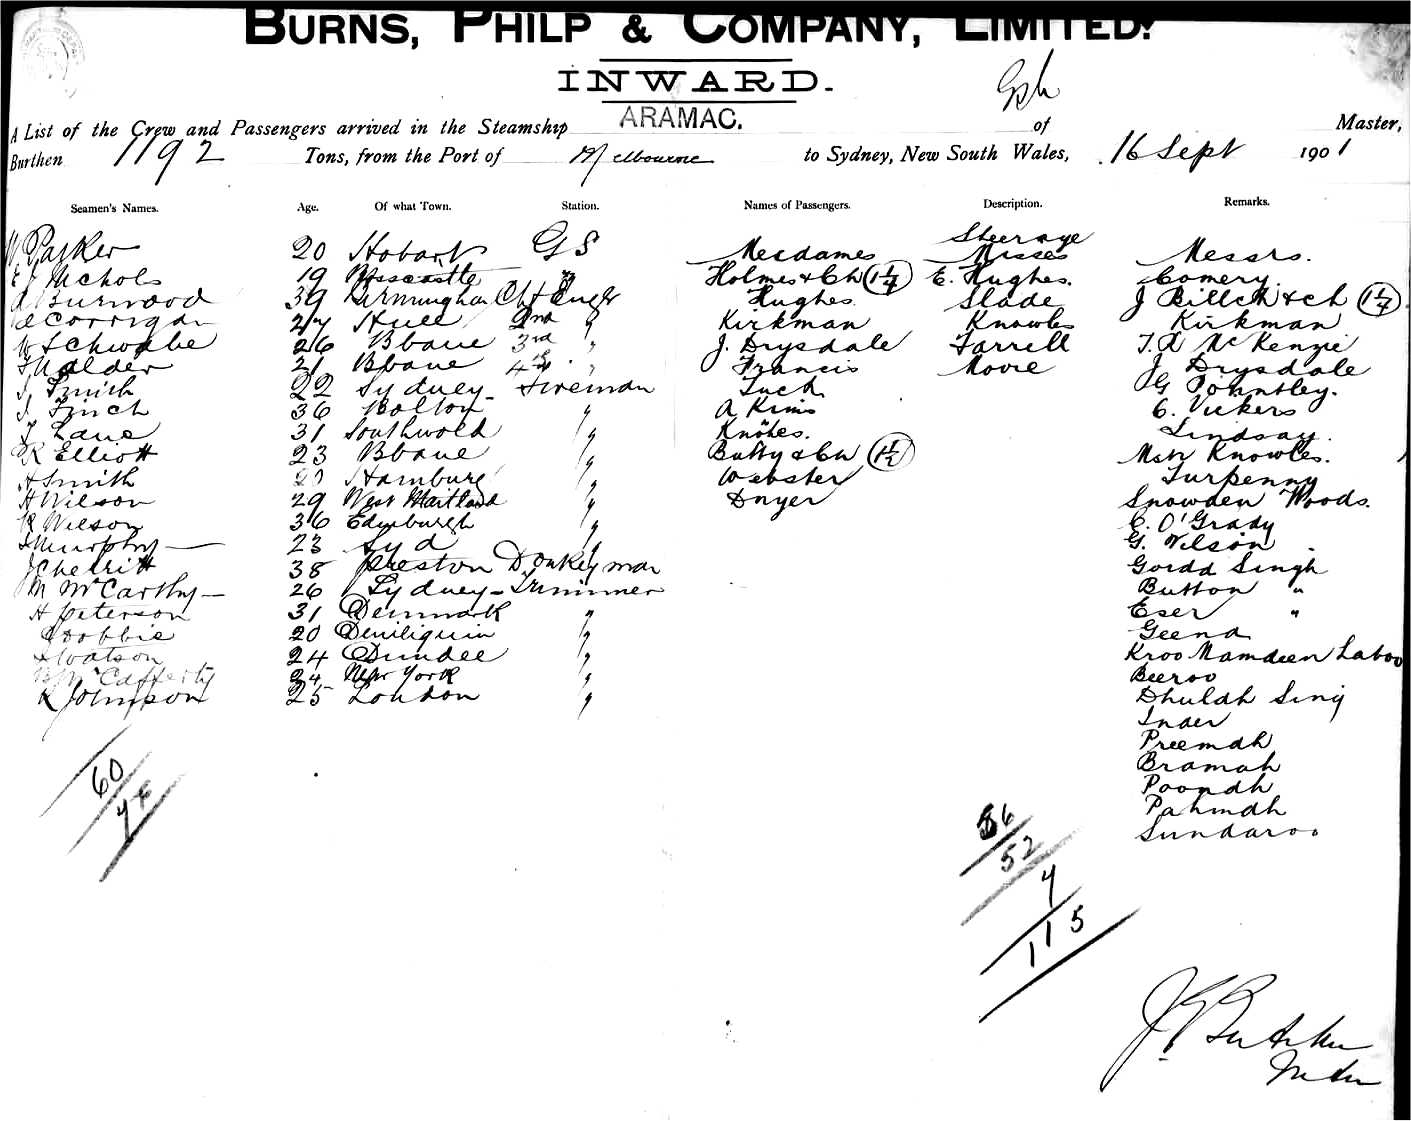 BURNS, PHILP & COMPANY, LIMITED.
INWARD.
A List of the Crew and Passengers arrived in the Steamship ARAMAC. of Master,
Burthen 1192 Tons, from the Port of Melbourne to Sydney, New South Wales, 16 Sept 1901
Seamen's Names. Age. Of what Town. Station. Names of Passengers. Description. Remarks.
Steerage
W. Parker 20 Hobart G S Mesdames Misses Messrs.
E J Nichols 19 Newcastle " Holmes & Ch (1 1/4) E. Hughes. Comery
A Burwood 39 Birmingham Chf Engr Hughes Slade J Billch & ch (1 1/4)
Corrigan 27 Hull 2nd " Kirkman Knowles Kirkman
W Schwabe 26 Bbane 3rd " J. Drysdale Farrell T. A McKenzie
Halder 21 Bbane 4th " Francis Moore J Drysdale
J. Smith 22 Sydney Fireman Tuck G Pountley.
J. Finch 36 Bolton " A Kims C. Vickers
J Lane 31 Southwold " Knókes. Lindsay.
R Elliott 23 Bbane " Batty & Ch (1 1/2) Mstr Knowles.
A Smith Hamburg " Webster Turpenny
H Wilson 29 West Maitland " Dwyer Snowden Woods.
R Wilson 36 Edinburgh " E. O'Grady
J Murphy — 23 Syd " G. Wilson
J Cherritt 38 Preston Donkeyman Gordd Singh
M McCarthy — 26 Sydney Trimmer Button "
H Peterson 31 Denmark " Eser "
Dobbie 20 Deniliquin " Geend
Watson 24 Dundee " Kroo Mamdeen Laboo
McCafferty 24 New York " Beeroo
R Johnson 25 London " Dhuldh Sing
Inder
Preemdh
Bramah
Poondh
Pahmdh
Sundaroo
60
56
52
4
115